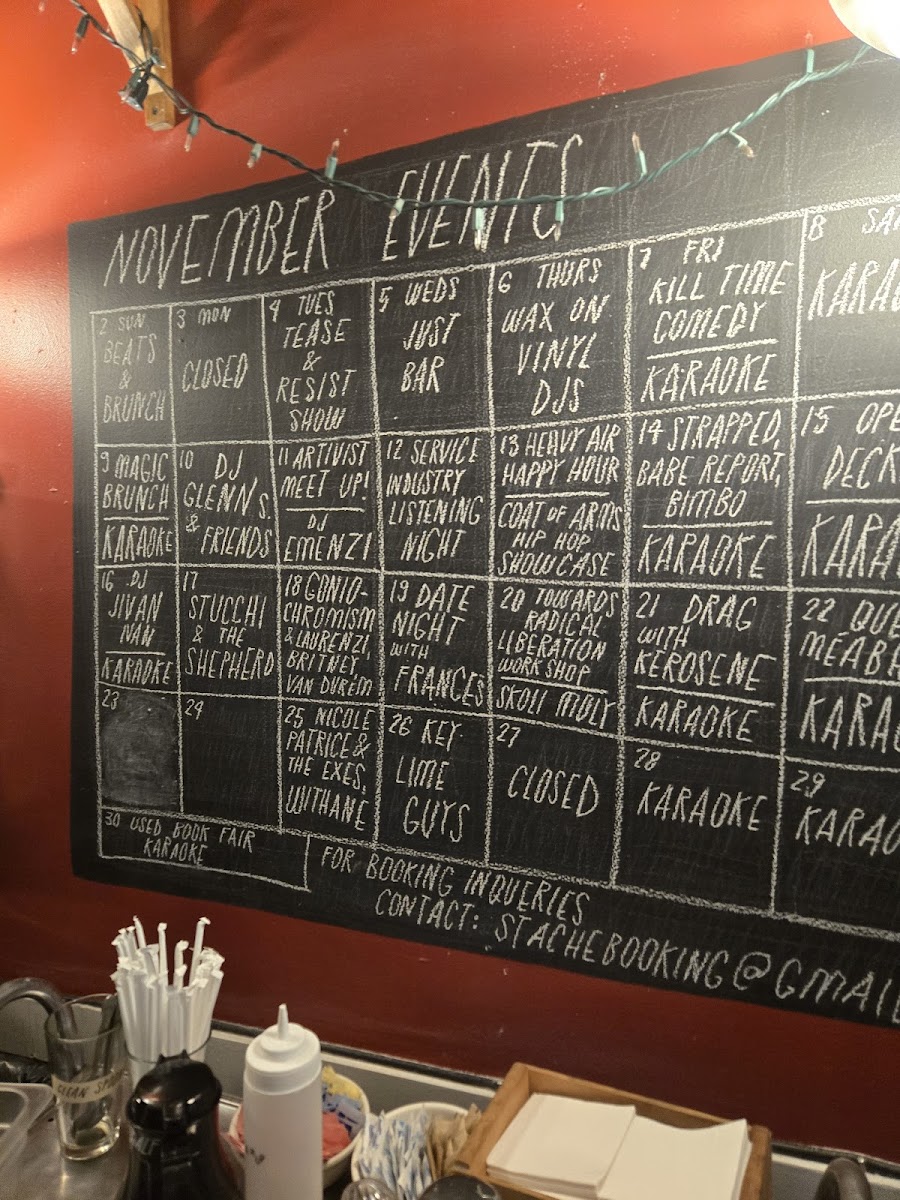 NOVEMBER EVENTS
2 SUN
BEATS
&
BRUNCH
3 MON
CLOSED
4 TUES
TEASE
&
RESIST
SHOW
5 WEDS
JUST
BAR
6 THURS
WAX ON
VINYL
DJS
7 FRI
KILL TIME
COMEDY
KARAOKE
8 SA
KARA
9 MAGIC
BRUNCH
KARAOKE
10 DJ
GLENN S.
& FRIENDS
11 ARTIVIST
MEET UP!
DJ
EMENZI
12 SERVICE
INDUSTRY
LISTENING
NIGHT
13 HEAVY AIR
HAPPY HOUR
COAT OF ARMS
HIP HOP
SHOWCASE
14 STRAPPED,
BABE REPORT,
BIMBO
KARAOKE
15 OPE
DECK
KARA
16 DJ
JIVAN
NAN
KARAOKE
17
STUCCHI
& THE
SHEPHERD
18 GONIO-
CHROMISM
& LAURENZI,
BRITNEY
VAN DUREM
19 DATE
NIGHT
WITH
FRANCES
20 TOWARDS
RADICAL
LIBERATION
WORKSHOP
SKOLI MOLY
21 DRAG
WITH
KEROSENE
KARAOKE
22 QUE
MEABH
KARA
23
24
25 NICOLE
PATRICE &
THE EXES,
WITHANE
26 KEY
LIME
GUYS
27
CLOSED
28
KARAOKE
29
KARAO
30 USED BOOK FAIR
KARAOKE
FOR BOOKING INQUERIES
CONTACT: STACHEBOOKING@GMAIL
CLEAN SP